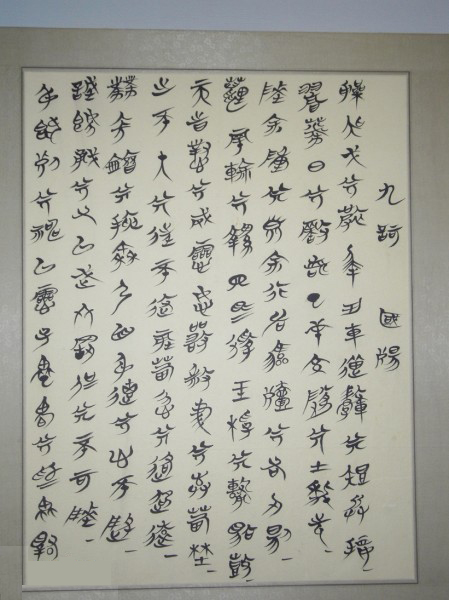 九歌 國殤
操吳戈兮被犀甲車錯轂兮短兵接
旌蔽日兮敵若雲矢交墜兮士爭先
凌余陣兮躐余行左驂殪兮右刃傷
霾兩輪兮縶四馬援玉枹兮擊鳴鼓
天時懟兮威靈怒嚴殺盡兮棄原野
出不入兮往不反平原忽兮路超遠
帶長劍兮挾秦弓首身離兮心不懲
誠既勇兮又以武終剛強兮不可凌
身既死兮神以靈子魂魄兮為鬼雄